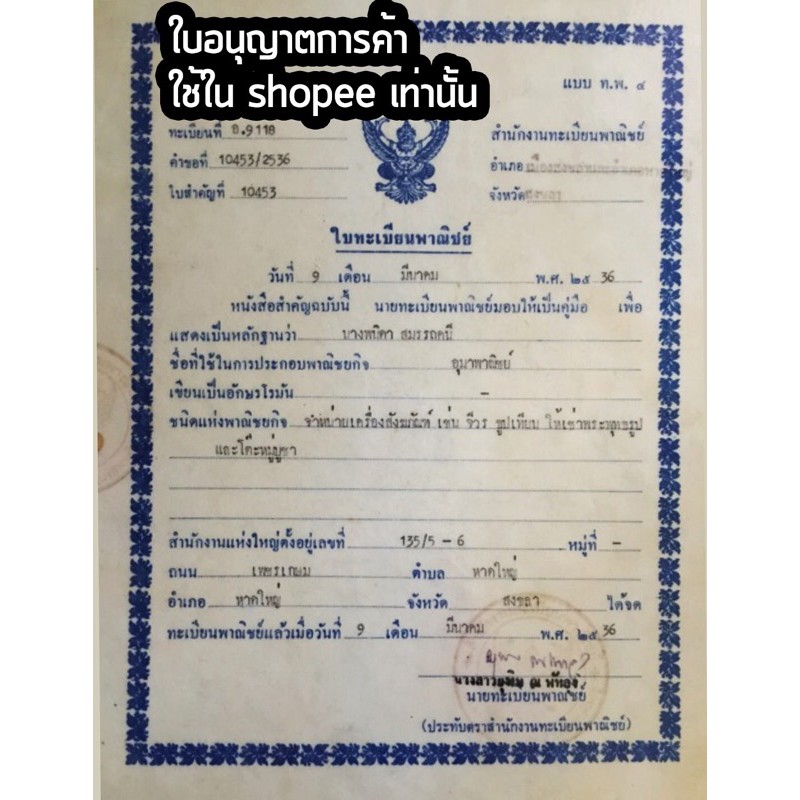 ใบอนุญาตการค้า
ใช้ใน shopee เท่านั้น
แบบ ท.พ. ๔
ทะเบียนที่ อ.9118
สำนักงานทะเบียนพาณิชย์
คำขอที่ 10453/2536
อำเภอ
ใบสำคัญที่ 10453
จังหวัดสงขลา
ใบทะเบียนพาณิชย์
วันที่ 9 เดือน มีนาคม พ.ศ. ๒๕ 36
หนังสือสำคัญฉบับนี้ นายทะเบียนพาณิชย์มอบให้เป็นคู่มือ เพื่อ
แสดงเป็นหลักฐานว่า นางพนิดา
ชื่อที่ใช้ในการประกอบพาณิชยกิจ อุมาพาณิชย์
เขียนเป็นอักษรโรมัน -
ชนิดแห่งพาณิชยกิจ จำหน่ายเครื่องสังฆภัณฑ์ เช่น จีวร ธูปเทียน ให้เช่าพระพุทธรูป
และโต๊ะหมู่บูชา
สำนักงานแห่งใหญ่ตั้งอยู่เลขที่ 135/5 - 6 หมู่ที่ -
ถนน เพชรเกษม ตำบล หาดใหญ่
อำเภอ หาดใหญ่ จังหวัด สงขลา ได้จด
ทะเบียนพาณิชย์แล้วเมื่อวันที่ 9 เดือน มีนาคม พ.ศ. ๒๕ 36
นายทะเบียนพาณิชย์
(ประทับตราสำนักงานทะเบียนพาณิชย์)